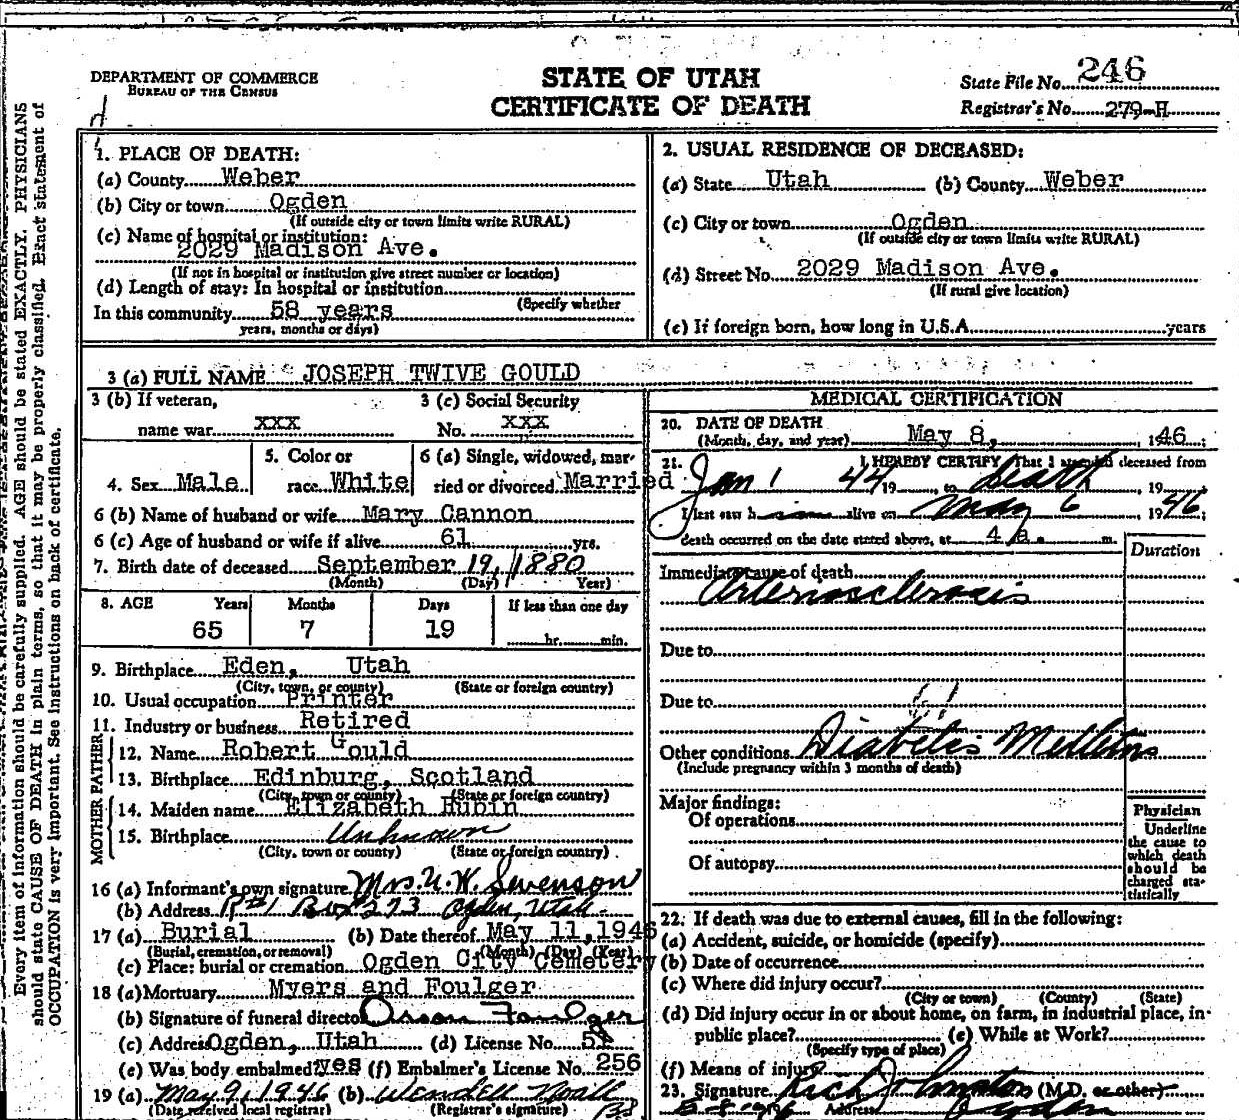 DEPARTMENT OF COMMERCE
BUREAU OF THE CENSUS
STATE OF UTAH
CERTIFICATE OF DEATH
State File No. 246
Registrar's No. 279-H
Every item of information should be carefully supplied. AGE should be stated EXACTLY. PHYSICIANS
should state CAUSE OF DEATH in plain terms, so that it may be properly classified. Exact statement of
OCCUPATION is very important. See instructions on back of certificate.
1. PLACE OF DEATH:
(a) County Weber
(b) City or town Ogden
(If outside city or town limits write RURAL)
(c) Name of hospital or institution:
2029 Madison Ave.
(If not in hospital or institution give street number or location)
(d) Length of stay: In hospital or institution
(Specify whether
In this community 58 years
years, months or days)
2. USUAL RESIDENCE OF DECEASED:
(a) State Utah (b) County Weber
(c) City or town Ogden
(If outside city or town limits write RURAL)
(d) Street No. 2029 Madison Ave.
(If rural give location)
(e) If foreign born, how long in U.S.A. years
3 (a) FULL NAME JOSEPH TWIVE GOULD
3 (b) If veteran,
name war XXX
3 (c) Social Security
No. XXX
4. Sex Male
5. Color or
race White
6 (a) Single, widowed, mar-
ried or divorced Married
6 (b) Name of husband or wife Mary Cannon
6 (c) Age of husband or wife if alive 61 yrs.
7. Birth date of deceased September 19, 1880
(Month) (Day) Year)
8. AGE Years Months Days If less than one day
65 7 19 hr. min.
9. Birthplace Eden, Utah
(City, town, or county) (State or foreign country)
10. Usual occupation Printer
11. Industry or business Retired
FATHER
12. Name Robert Gould
13. Birthplace Edinburg, Scotland
(City, town or county) (State or foreign country)
MOTHER
14. Maiden name Elizabeth Hubin
15. Birthplace Unknown
(City, town or county) (State or foreign country)
16 (a) Informant's own signature Mrs. U. W. Swenson
(b) Address R#1 Box 273 Ogden, Utah
17 (a) Burial (b) Date thereof May 11, 1946
(Burial, cremation, or removal) (Month) (Day) (Year)
(c) Place: burial or cremation Ogden City Cemetery
18 (a) Mortuary Myers and Foulger
(b) Signature of funeral director Orson Foulger
(c) Address Ogden, Utah (d) License No.
(e) Was body embalmed? yes (f) Embalmer's License No. 256
19 (a) May 9, 1946 (b) Wendell Noall
(Date received local registrar) (Registrar's signature)
MEDICAL CERTIFICATION
20. DATE OF DEATH
(Month, day, and year) May 8, , 1946;
21. I HEREBY CERTIFY, That I attended deceased from
Jan 1 44 19 , to Death , 19 ;
I last saw him alive on May 6 1946;
death occurred on the date stated above, at 4 a. m.
Duration
Immediate cause of death
Arteriosclerosis
Due to
Due to
Other conditions Diabetis Mellitus
(Include pregnancy within 3 months of death)
Major findings:
Of operations
Of autopsy
Physician
Underline
the cause to
which death
should be
charged sta-
tistically
22. If death was due to external causes, fill in the following:
(a) Accident, suicide, or homicide (specify)
(b) Date of occurrence
(c) Where did injury occur?
(City or town) (County) (State)
(d) Did injury occur in or about home, on farm, in industrial place, in
public place? (e) While at Work?
(Specify type of place)
(f) Means of injury?
23. Signature Rich Johnston (M.D. or other)
Address Ogden